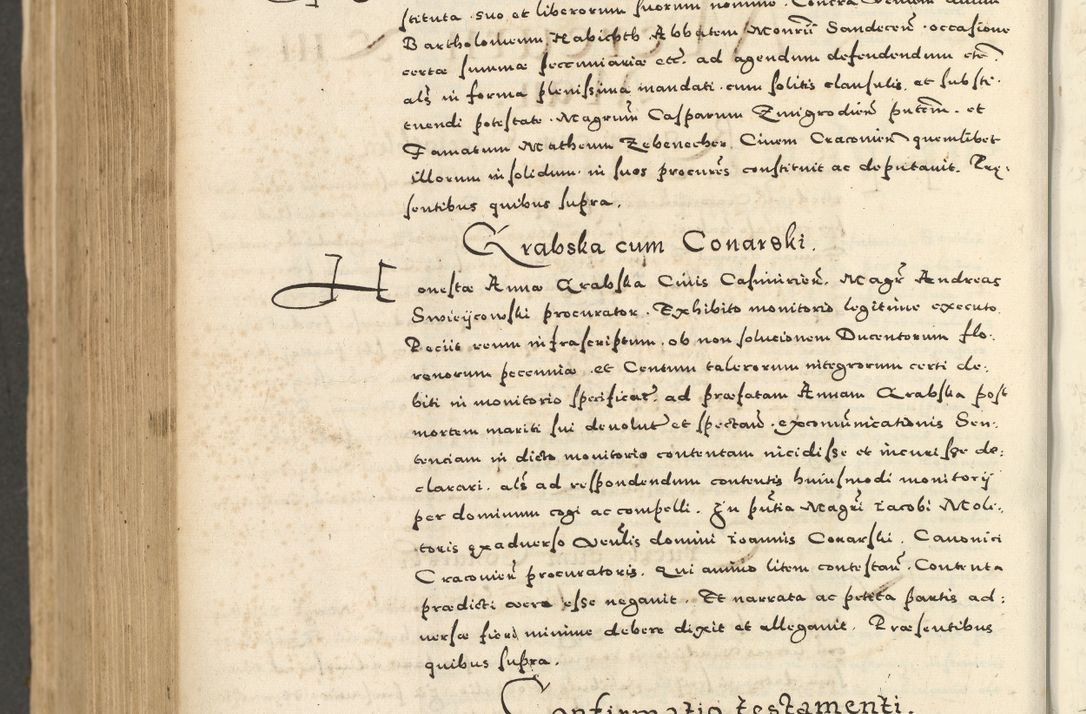 stituta suo et liberorum suorum nomine. Contra Venlem
Bartholomeum Habichth Abbatem Monrij Sandecen̄. occasione
certæ summæ pecuniariæ etc. ad agendum defendendum etc.
als in forma plenissima mandati. cum solitis clausulis. et substi-
tuendi potestate. Magrum Casparum Zmigrodien̄ pntem. et
Famatum Matheum Zebenecher. Ciuem Cracovien̄ quemlibet
illorum in solidum. in suos procures constituit ac deputauit. Præ-
sentibus quibus supra.
Grabska cum Conarski.
Honestæ Annæ Grabska Ciuis Casimirien̄. Magr Andreas
Swieijcowski procurator. Exhibito monitorio legitime executo.
Peciit reum infrascriptum. ob non solucionem Ducentorum flo-
renorum pecenniæ. et Centum talerorum integrorum certi de-
biti in monitorio specificat. ad præfatam Annam Grabska post
mortem mariti sui deuolut et spectan̄. excomunicationis Sen-
tenciam in dicto monitorio contentam incidisse et incurisse de-
clarari. als ad respondendum contentis huiusmodi monitorij
per dominum cogi ac compelli. In pntia Magri Jacobi Moli-
toris ex aduerso Venlis domini Joannis Conarski. Canonici
Cracovien̄ procuratoris. qui animo litem contestan̄. Contenta
prædicti vera esse negauit. Et narrata ac petita partis ad-
uersæ fieri minime debere dixit et allegauit. Præsentibus
quibus supra.
Confirmatio testamenti.